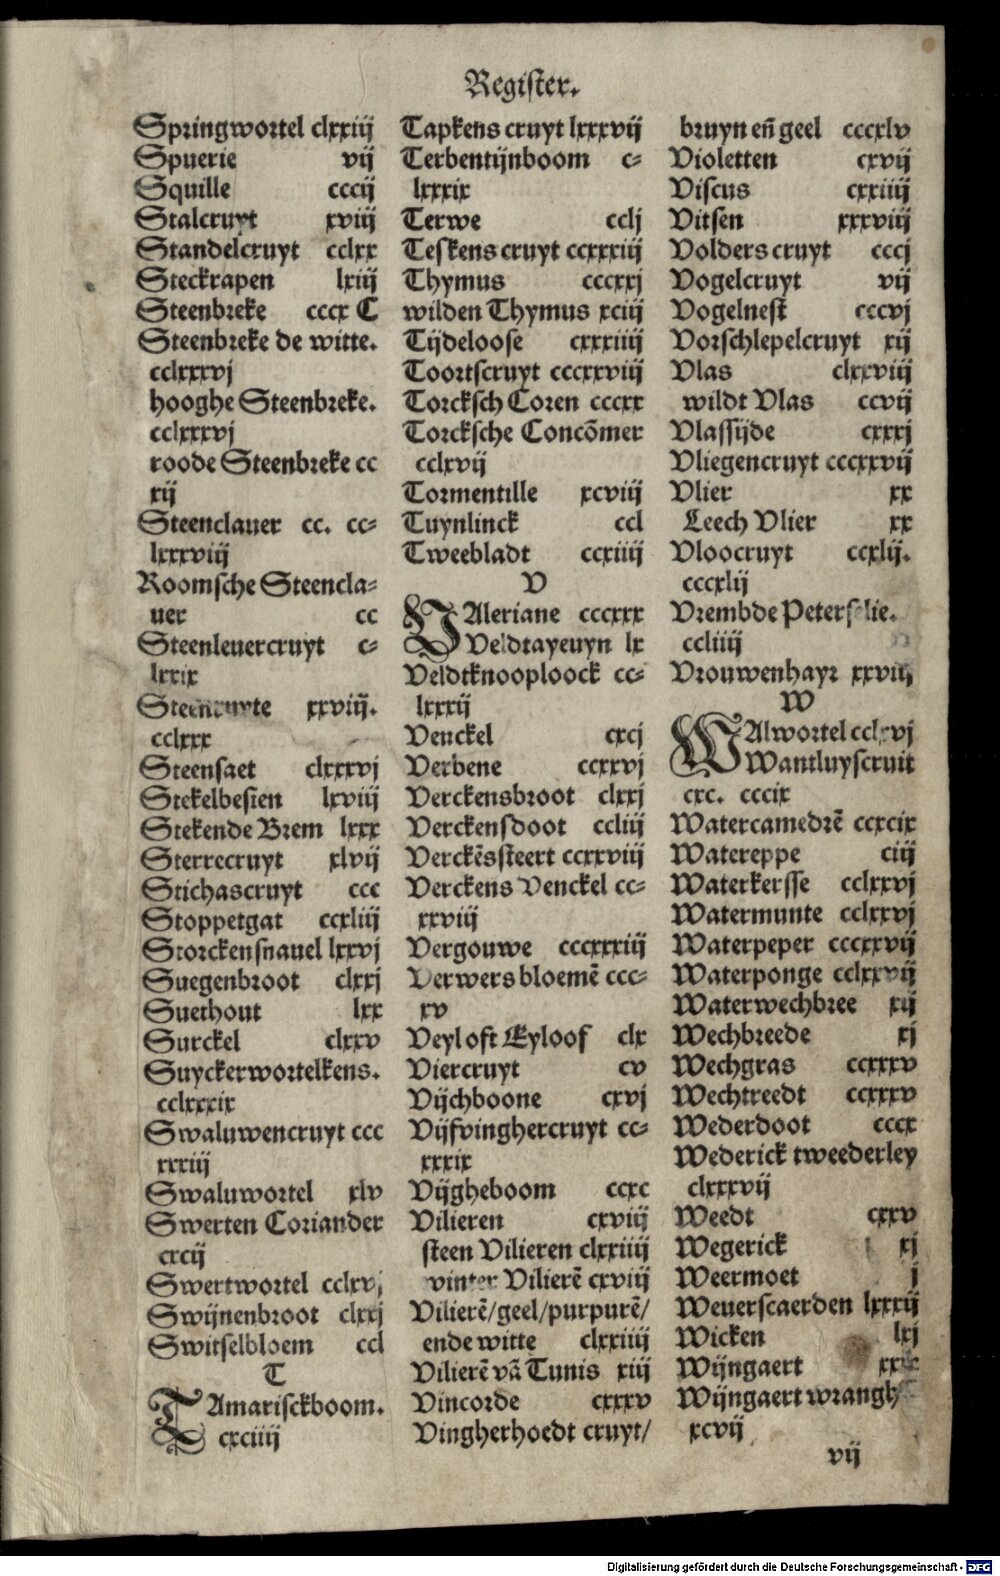 Register.
Springwortel clxxiij
Spuerie vij
Squille cccij
Stalcruyt xviij
Standelcruyt cclxx
Steckrapen lxiij
Steenbreke cccx C
Steenbreke de witte.
cclxxxvj
hooghe Steenbreke.
cclxxxvj
roode Steenbreke cc
xij
Steenclauer cc. cc⸗
lxxxviij
Roomsche Steencla⸗
uer cc
Steenleuercruyt c⸗
lxxix
xxviij.
cclxxx
Steensaet clxxxvj
Stekelbesien lxviij
Stekende Brem lxxx
Sterrecruyt xlvij
Stichascruyt ccc
Stoppetgat ccxliij
Storckensnauel lxxvj
Suegenbroot clxxj
Suethout lxx
Surckel clxxv
Suyckerwortelkens.
cclxxxix
Swaluwencruyt ccc
xxxiij
Swaluwortel xlv
Swerten Coriander
cxcij
Swertwortel cclxvj
Swijnenbroot clxxj
Switselbloem ccl
T
TAmarisckboom.
cxciiij
Tapkens cruyt lxxxvij
Terbentijnboom c⸗
lxxxix
Terwe cclj
Teskens cruyt ccxxxiij
Thymus cccxxj
wilden Thymus xciij
Tijdeloose cxxxiiij
Toortscruyt cccxxviij
Torcksch Coren cccxx
Torcksche Concõmer
cclxvij
Tormentille xcviij
Tuynlinck ccl
Tweebladt ccxiiij
V
VAleriane cccxxx
Veldtayeuyn lx
Veldtknooploock cc⸗
lxxxij
Venckel cxcj
Verbene ccxxvj
Verckensbroot clxxj
Verckensdoot ccliij
Verckẽssteert ccxxviij
Verckens Venckel cc⸗
xxviij
Vergouwe cccxxxiij
Verwers bloemẽ ccc⸗
xv
Veyl oft Eyloof clx
Viercruyt cv
Vijchboone cxvj
Vijfvinghercruyt cc⸗
xxxix
Vijgheboom ccxc
Vilieren cxviij
steen Vilieren clxxiiij
winter Vilierẽ cxviij
Vilierẽ/geel/purpurẽ/
ende witte clxxiiij
Vilierẽ vã Tunis xiij
Vincorde cxxxv
Vingherhoedt cruyt/
bruyn eñ geel cccxlv
Violetten cxvij
Viscus cxxiiij
Vitsen xxxviij
Volders cruyt cccj
Vogelcruyt vij
Vogelnest cccvj
Vorschlepelcruyt xij
Vlas clxxviij
wildt Vlas ccvij
Vlassijde cxxxj
Vliegencruyt cccxxvij
Vlier xx
Leech Vlier xx
Vloocruyt ccxlij.
cccxlij
Vrembde Peterselie.
ccliiij
Vrouwenhayr xxvij
W
WAlwortel cclxvj
Wantluyscruit
cxc. cccix
Watercamedrẽ ccxcix
Watereppe ciij
Waterkersse cclxxvj
Watermunte cclxxvj
Waterpeper cccxxvij
Waterponge cclxxvij
Waterwechbree xij
Wechbreede xj
Wechgras ccxxxv
Wechtreedt ccxxxv
Wederdoot cccx
Wederick tweederley
clxxxvij
Weedt cxxv
Wegerick xj
Weermoet j
Weuerscaerden lxxxij
Wicken lxj
Wijngaert
Wijngaert wrangh
xcvij
vij
Digitalisierung gefördert durch die Deutsche Forschungsgemeinschaft - DFG